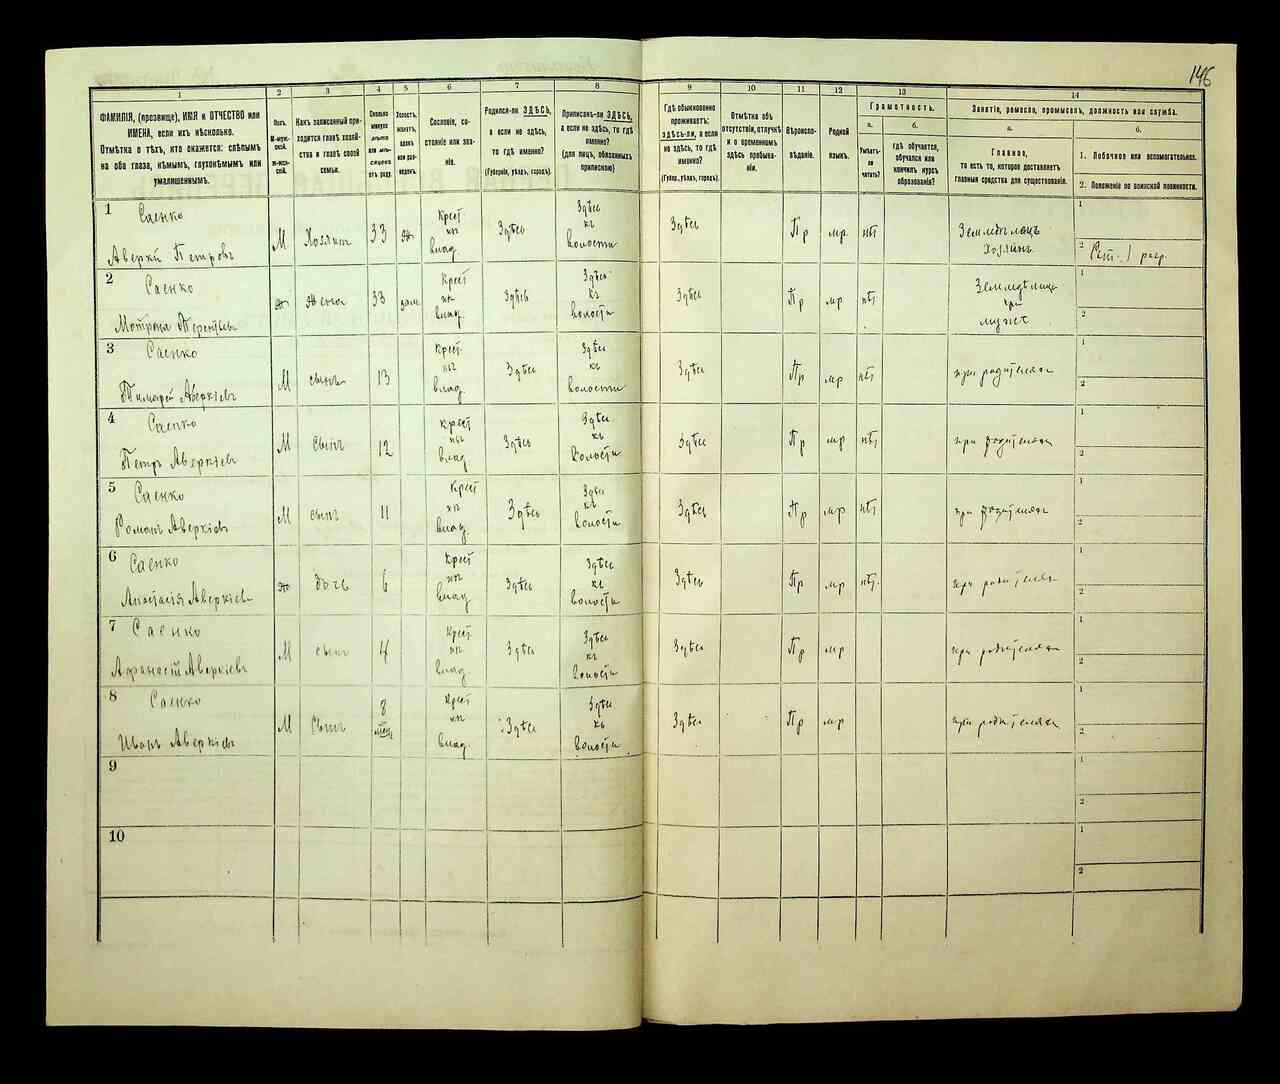 146
1
2
3
4
5
6
7
8
9
10
11
12
13
14
ФАМИЛІЯ, (прозвище), ИМЯ и ОТЧЕСТВО или
ИМЕНА, если ихъ нѣсколько.
Отмѣтка о тѣхъ, кто окажется: слѣпымъ
на оба глаза, нѣмымъ, глухонѣмымъ или
умалишеннымъ.
Полъ.
М-муж-
ской.
ж-жен-
скій.
Какъ записанный при-
ходится главѣ хозяй-
ства и главѣ своей
семьи.
Сколько
минуло
лѣтъ
или мѣ-
сяцевъ
отъ роду.
Холостъ,
женатъ,
вдовъ
или раз-
веденъ.
Сословіе, со-
стояніе или зва-
ніе.
Родился-ли ЗДѢСЬ,
а если не здѣсь,
то гдѣ именно?
(Губернія, уѣздъ, городъ).
Приписанъ-ли ЗДѢСЬ,
а если не здѣсь, то гдѣ
именно?
(для лицъ, обязанныхъ
припискою)
Гдѣ обыкновенно
проживаетъ:
здѣсь-ли, а если
не здѣсь, то гдѣ
именно?
(Губер., уѣздъ, городъ).
Отмѣтка объ
отсутствіи, отлучкѣ
и о временномъ
здѣсь пребыва-
ніи.
Вѣроиспо-
вѣданіе.
Родной
языкъ.
Грамотность.
а.
Умѣетъ-
ли
читать?
б.
гдѣ обучается,
обучался или
кончилъ курсъ
образованія?
Занятіе, ремесло, промыселъ, должность или служба.
а.
Главное,
то есть то, которое доставляетъ
главныя средства для существованія.
б.
1. Побочное или вспомогательное.
2. Положеніе по воинской повинности.
1
Саенко
Аверкій Петровъ
М
Хозяин
33
ж
Крест
из
влад.
Здѣсь
Здѣсь
къ
волости
Здѣсь
Пр
мр
нѣт
Земледѣлецъ
хозяинъ
1
2
разр.
2
Саенко
Мотрона Терентьев
ж
жена
33
зам
Крест
из
влад.
Здѣсь
Здѣсь
къ
волости
Здѣсь
Пр
мр
нѣт
Земледѣлица
при
мужѣ
1
2
3
Саенко
Тимофей Аверкіевъ
М
сынъ
13
Крест.
из
влад.
Здѣсь
Здѣсь
къ
волости
Здѣсь
Пр
мр
нѣт
при родителях
1
2
4
Саенко
Петръ Аверкіев
М
сынъ
12
Крест
из
влад
Здѣсь
Здѣсь
къ
волости
Здѣсь
Пр
мр
нѣт
при родителях
1
2
5
Саенко
Романъ Аверкіев
М
сынъ
11
Крест
из
влад.
Здѣсь
Здѣсь
къ
волости
Здѣсь
Пр
мр
нѣт
при родителях
1
2
6
Саенко
Анастасія Аверкіев
ж
дочь
6
Крест
из
влад.
Здѣсь
Здѣсь
къ
волости
Здѣсь
Пр
мр
нѣт.
при родителях
1
2
7
Саенко
Афанасій Аверкіев
М
сынъ
4
Крест.
из
влад
Здѣсь
Здѣсь
къ
волости
Здѣсь
Пр
мр
при родителях
1
2
8
Саенко
Иванъ Аверкіевъ
М
Сынъ
8
мѣс
Крест
из
влад.
Здѣсь
Здѣсь
къ
волости
Здѣсь
Пр
мр
при родителях
1
2
9
1
2
10
1
2